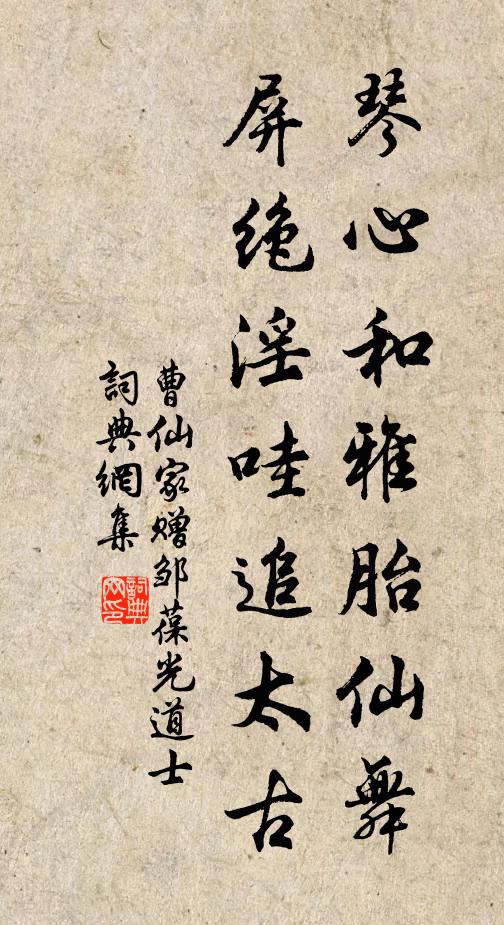 琴心和雅胎仙舞
屏絶淫哇追太古
曹仙家赠邹葆光道士
詞典網集
詞典網印